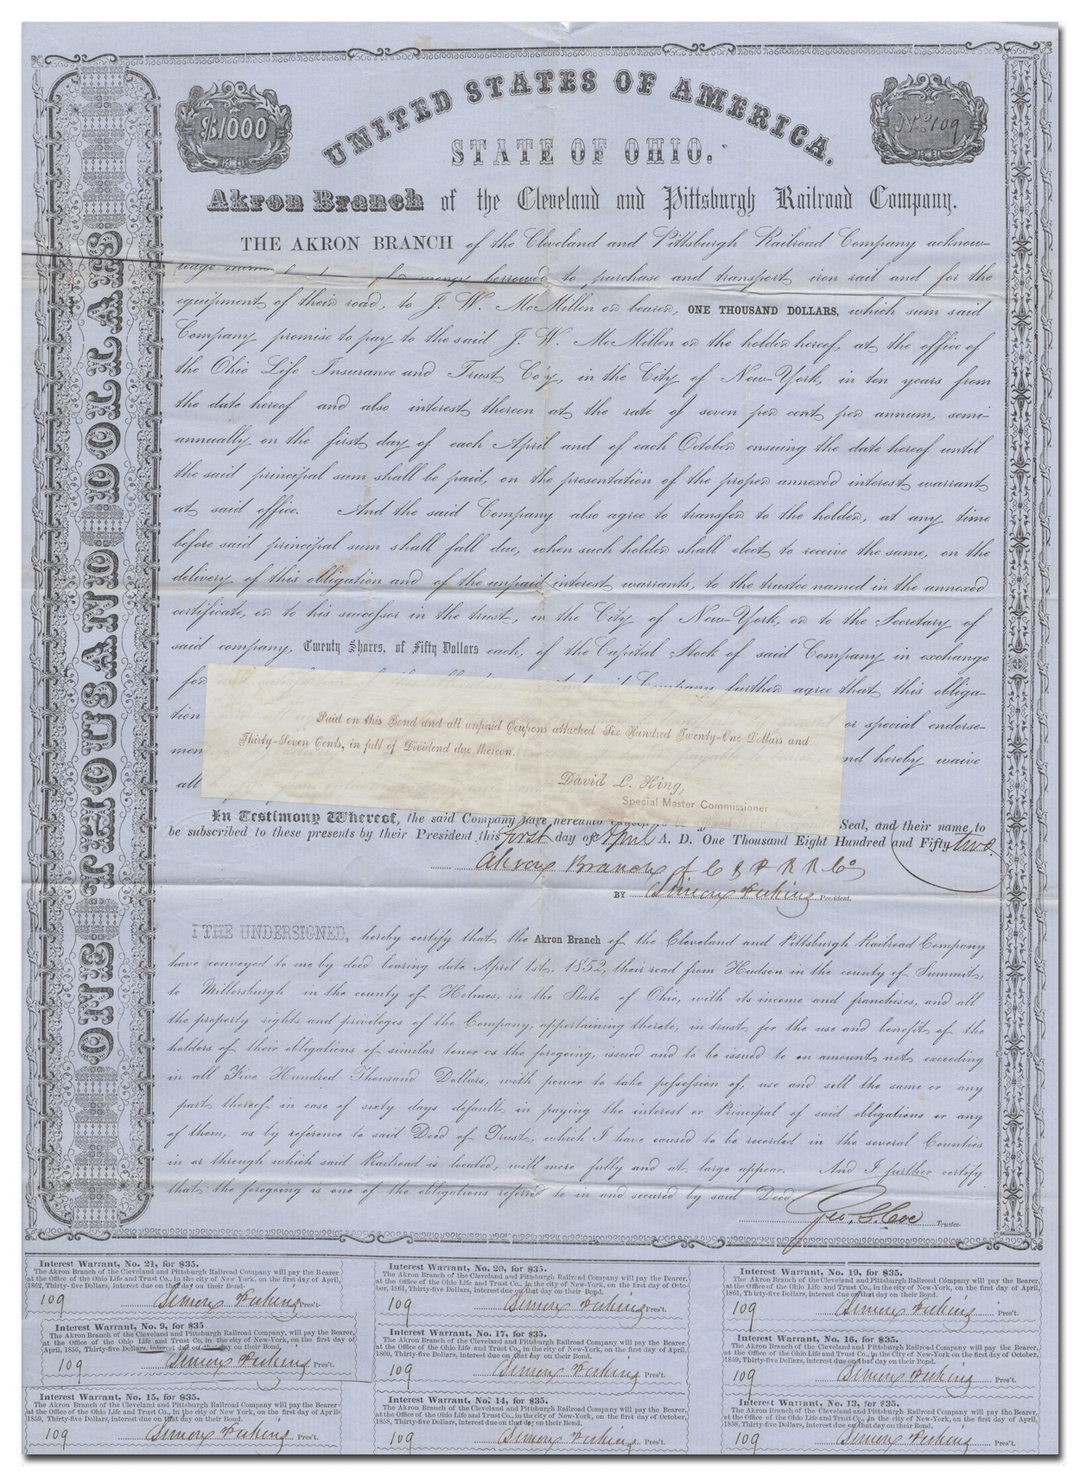 UNITED STATES OF AMERICA.
STATE OF OHIO.
$1000
No 109
Akron Branch of the Cleveland and Pittsburgh Railroad Company.
ONE THOUSAND DOLLARS
THE AKRON BRANCH of the Cleveland and Pittsburgh Railroad Company acknow-
money borrowed to purchase and transport iron rail and for the
equipment of their road, to J. W. McMillen or bearer, ONE THOUSAND DOLLARS, which sum said
Company promise to pay to the said J. W. McMillen or the holder hereof, at the office of
the Ohio Life Insurance and Trust Coy, in the City of New-York, in ten years from
the date hereof and also interest thereon at the rate of seven per cent per annum, semi-
annually on the first day of each April and of each October ensuing the date hereof until
the said principal sum shall be paid, on the presentation of the proper annexed interest warrant
at said office. And the said Company also agree to transfer to the holder, at any time
before said principal sum shall fall due, when such holder shall elect to receive the same, on the
delivery of this obligation and of the unpaid interest warrants, to the trustee named in the annexed
certificate, or to his successor in the trust, in the City of New-York, or to the Secretary of
said company, Twenty Shares, of Fifty Dollars each, of the Capital Stock of said Company in exchange
for said Company further agree that this obliga-
tion or special endorse-
men and hereby waive
all
Paid on this Bond and all unpaid Coupons attached Six Hundred Twenty-One Dollars and
Thirty-Seven Cents, in full of Dividend due thereon.
David L. King,
Special Master Commissioner
In Testimony Whereof, the said Company have hereunto Seal, and their name to
be subscribed to these presents by their President, this first day of April A. D. One Thousand Eight Hundred and Fifty two.
Akron Branch of C & P R R Co
BY Simon Perkins President.
I THE UNDERSIGNED, hereby certify that the Akron Branch of the Cleveland and Pittsburgh Railroad Company
have conveyed to me by deed bearing date April 1st, 1852, their road from Hudson in the county of Summit,
to Millersburgh in the county of Holmes, in the State of Ohio, with its income and franchises, and all
the property rights and privileges of the Company, appertaining thereto, in trust for the use and benefit of the
holders of their obligations of similar tenor as the foregoing, issued and to be issued to an amount not exceeding
in all Five Hundred Thousand Dollars, with power to take possession of, use and sell the same or any
part thereof in case of sixty days default in paying the interest or Principal of said obligations or any
of them, as by reference to said Deed of Trust, which I have caused to be recorded in the several Counties
in or through which said Railroad is located, will more fully and at large appear. And I further certify
that the foregoing is one of the obligations referred to in and secured by said Deed
Geo. S. Coe Trustee.
Interest Warrant, No. 21, for $35.
The Akron Branch of the Cleveland and Pittsburgh Railroad Company will pay the Bearer,
at the Office of the Ohio Life and Trust Co., in the city of New York, on the first day of April,
1862, Thirty-five Dollars, interest due on that day on their Bond.
109 Simon Perkins Pres't.
Interest Warrant, No. 20, for $35.
The Akron Branch of the Cleveland and Pittsburgh Railroad Company will pay the Bearer,
at the Office of the Ohio Life and Trust Co., in the city of New-York, on the first day of Octo-
ber, 1861, Thirty-five Dollars, interest due on that day on their Bond.
109 Simon Perkins Pres't.
Interest Warrant, No. 19, for $35.
The Akron Branch of the Cleveland and Pittsburgh Railroad Company will pay the Bearer,
at the Office of the Ohio Life and Trust Co., in the city of New-York, on the first day of April,
1861, Thirty-five Dollars, interest due on that day on their Bond.
109 Simon Perkins Pres't.
Interest Warrant, No. 9, for $35
The Akron Branch of the Cleveland and Pittsburgh Railroad Company, will pay the Bearer,
at the Office of the Ohio Life and Trust Co, in the city of New-York, on the first day of
April, 1856, Thirty-five Dollars, interest due on that day on their Bond.
109 Simon Perkins Pres't.
Interest Warrant, No. 17, for $35.
The Akron Branch of the Cleveland and Pittsburgh Railroad Company will pay the Bearer,
at the Office of the Ohio Life and Trust Co., in the city of New-York, on the first day of April,
1860, Thirty-five Dollars, interest due on that day on their Bond.
109 Simon Perkins Pres't.
Interest Warrant, No. 16, for $35.
The Akron Branch of the Cleveland and Pittsburgh Railroad Company will pay the Bearer,
at the Office of the Ohio Life and Trust Co., in the City of New-York on the first day of October,
1859, Thirty-five Dollars, interest due on that day on their Bond.
109 Simon Perkins Pres't.
Interest Warrant, No. 15, for $35.
The Akron Branch of the Cleveland and Pittsburgh Railroad Company will pay the Bearer,
at the Office of the Ohio Life and Trust Co., in the city of New-York, on the first day of April
1859, Thirty-five Dollars, interest due on that day on their Bond.
109 Simon Perkins Pres't.
Interest Warrant, No. 14, for $35.
The Akron Branch of the Cleveland and Pittsburgh Railroad Company will pay the Bearer,
at the Office of the Ohio Life and Trust Co., in the city of New-York, on the first day of October,
1858, Thirty-five Dollars, interest due on that day on their Bond.
109 Simon Perkins Pres't.
Interest Warrant, No. 13, for $35.
The Akron Branch of the Cleveland and Pittsburgh Railroad Company will pay the Bearer,
at the Office of the Ohio Life and Trust Co., in the city of New-York, on the first day of April,
1858, Thirty-five Dollars, interest due on that day on their Bond.
109 Simon Perkins Pres't.